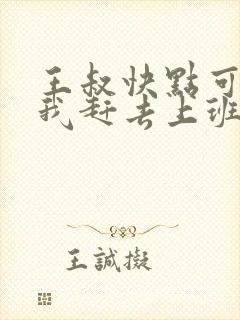 王叔快點可
我赶去上班
王誠擬